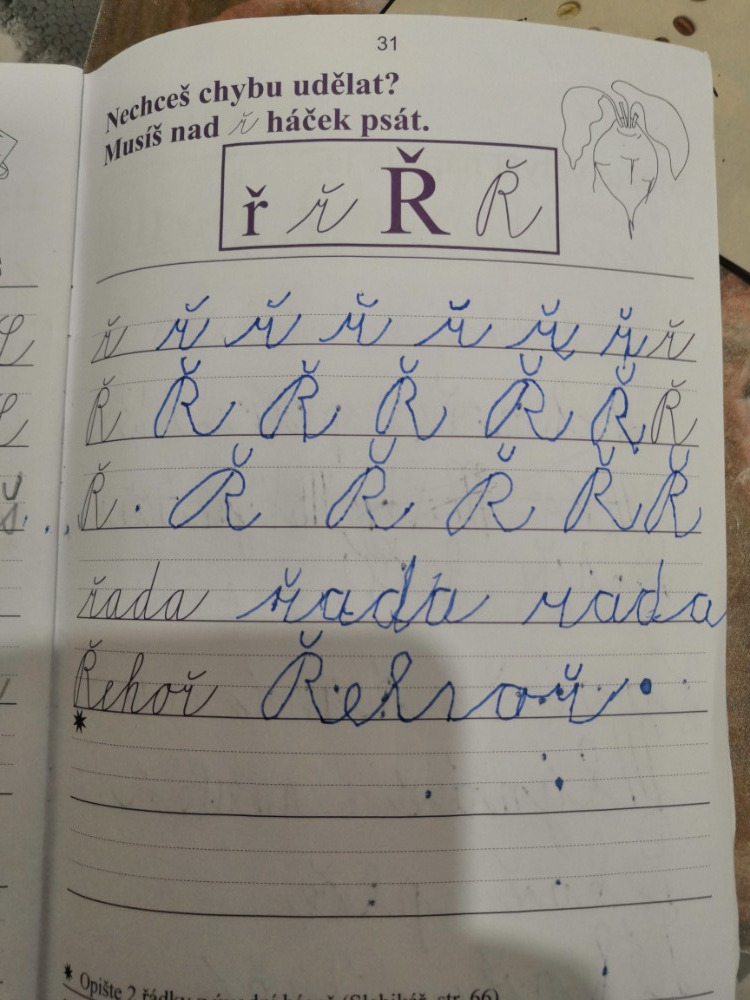 31
Nechceš chybu udělat?
Musíš nad ř háček psát.
ř ř Ř Ř
ř ř ř ř ř ř ř ř
Ř Ř Ř Ř Ř Ř Ř
Ř Ř Ř Ř Ř Ř
řada řada rada
Řehoř Řehoř
*
* Opište 2 řádky (Slabikář, str. 66)